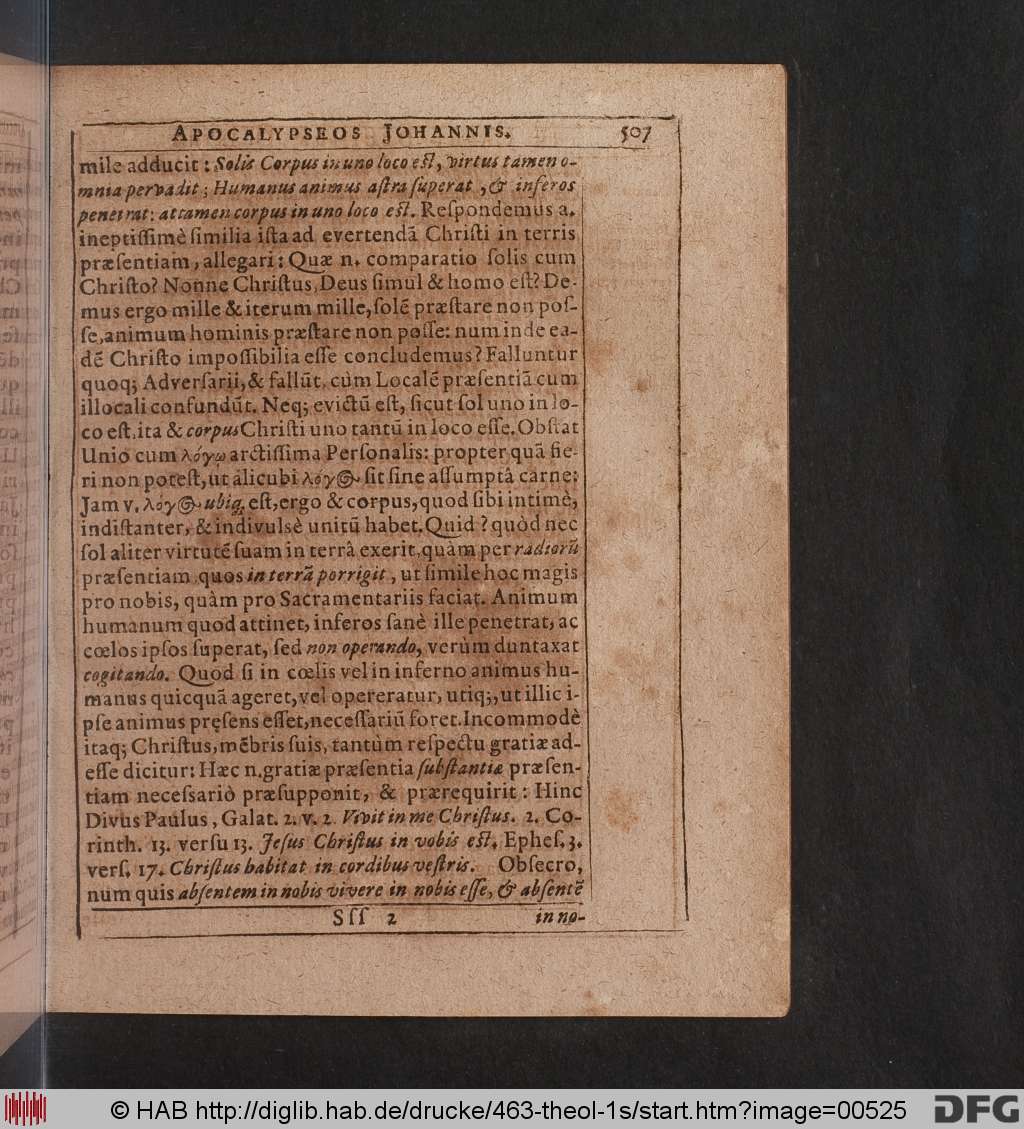 APOCALYPSEOS JOHANNIS. 507
mile adducit: Solis Corpus in uno loco est, virtus tamen o-
mnia pervadit; Humanus animus aſtra ſuperat, & inferos
penetrat: attamen corpus in uno loco est. Reſpondemus a.
ineptiſſimè ſimilia iſta ad evertendā Chriſti in terris
præſentiam, allegari: Quæ n. comparatio ſolis cum
Chriſto? Nonne Chriſtus, Deus ſimul & homo eſt? De-
mus ergo mille & iterum mille, ſolē præſtare non poſ-
ſe, animum hominis præſtare non poſſe: num inde ea-
dē Chriſto impoſſibilia eſſe concludemus? Falluntur
quoq; Adverſarii, & fallūt, cùm Localē præſentiā cum
illocali confundūt. Neq; evictū eſt, ſicut ſol uno in lo-
co eſt, ita & corpus Chriſti uno tantū in loco eſſe. Obſtat
Unio cum λόγῳ arctiſſima Perſonalis: propter quā fie-
ri non poteſt, ut alicubi λόγος ſit ſine aſſumptâ carne:
Jam v. λόγος ubiq; eſt, ergo & corpus, quod ſibi intimè,
indiſtanter, & indivulsè unitū habet. Quid? quòd nec
ſol aliter virtutē ſuam in terrâ exerit, quàm per radiorū
præſentiam, quos in terrā porrigit, ut ſimile hoc magis
pro nobis, quàm pro Sacramentariis faciat. Animum
humanum quod attinet, inferos ſanè ille penetrat, ac
cœlos ipſos ſuperat, ſed non operando, verùm duntaxat
cogitando. Quod ſi in cœlis vel in inferno animus hu-
manus quicquā ageret, vel operaretur, utiq;, ut illic i-
pſe animus pręſens eſſet, neceſſariū foret. Incommodè
itaq; Chriſtus, mēbris ſuis, tantùm reſpectu gratiæ ad-
eſſe dicitur: Hæc n. gratiæ præſentia ſubſtantiæ præſen-
tiam neceſsariò præſupponit, & prærequirit: Hinc
Divus Paulus, Galat. 2. v. 2. Vivit in me Chriſtus. 2. Co-
rinth. 13. verſu 13. Jeſus Chriſtus in vobis est. Epheſ. 3.
verſ. 17. Chriſtus habitat in cordibus veſtris. Obſecro,
num quis abſentem in nobis vivere in nobis eſſe, & abſentē
Sſſ 2 in no-
© HAB http://diglib.hab.de/drucke/463-theol-1s/start.htm?image=00525 DFG